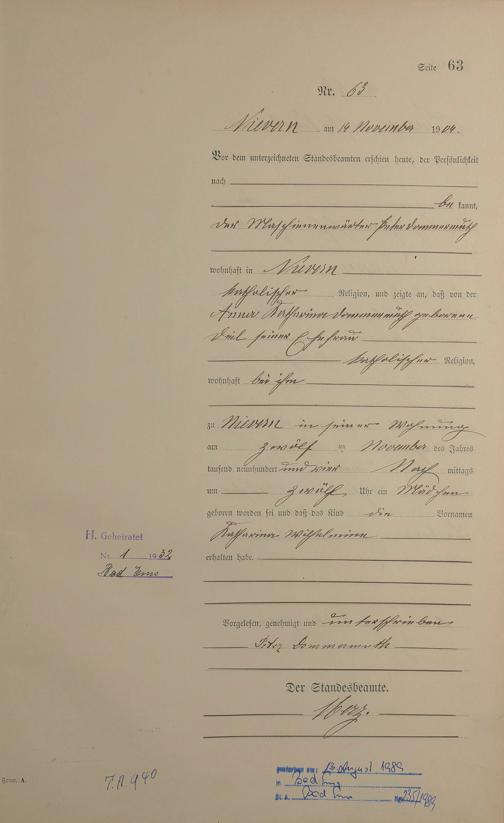 Seite 63
Nr. 63
Nievern am 14 November 1904.
Vor dem unterzeichneten Standesbeamten erschien heute, der Persönlichkeit
nach
be kannt,
der Maschienenwärter Peter Dommermuth
wohnhaft in Nievern
katholischer Religion, und zeigte an, daß von der
Anna Katharina Dommermuth geborenen
Deil seiner Ehefrau
katholischer Religion,
wohnhaft bei ihm
zu Nievern in seiner Wohnung
am zwölf ten November des Jahres
tausend neunhundert und vier Nach mittags
um zwölf Uhr ein Mädchen
geboren worden sei und daß das Kind die Vornamen
Katharina Wilhelmine
H. Geheiratet
Nr. 1 1932
Bad Ems
erhalten habe.
Vorgelesen, genehmigt und unterschrieben
Peter Dommermuth
Der Standesbeamte.
Form. A.
gestorben am: 13. August 1989
in Bad Ems
St. A. Bad Ems Nr. 235/1989